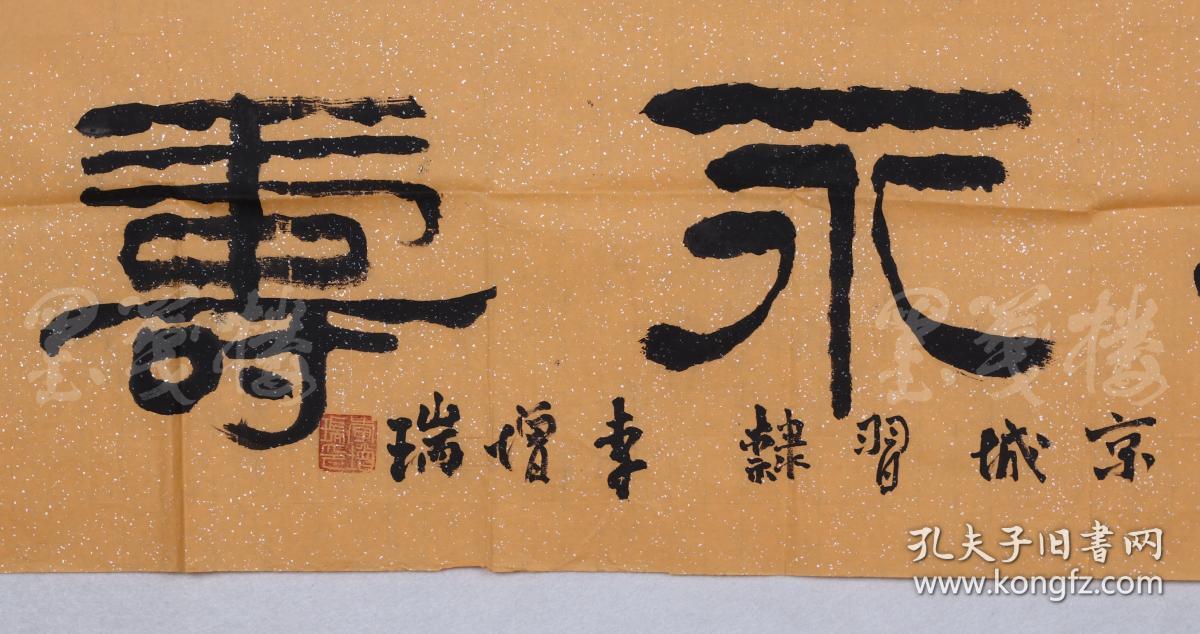 永壽
京城習隸李增瑞
墨笺楼
墨笺楼
孔夫子旧書网
www.kongfz.com